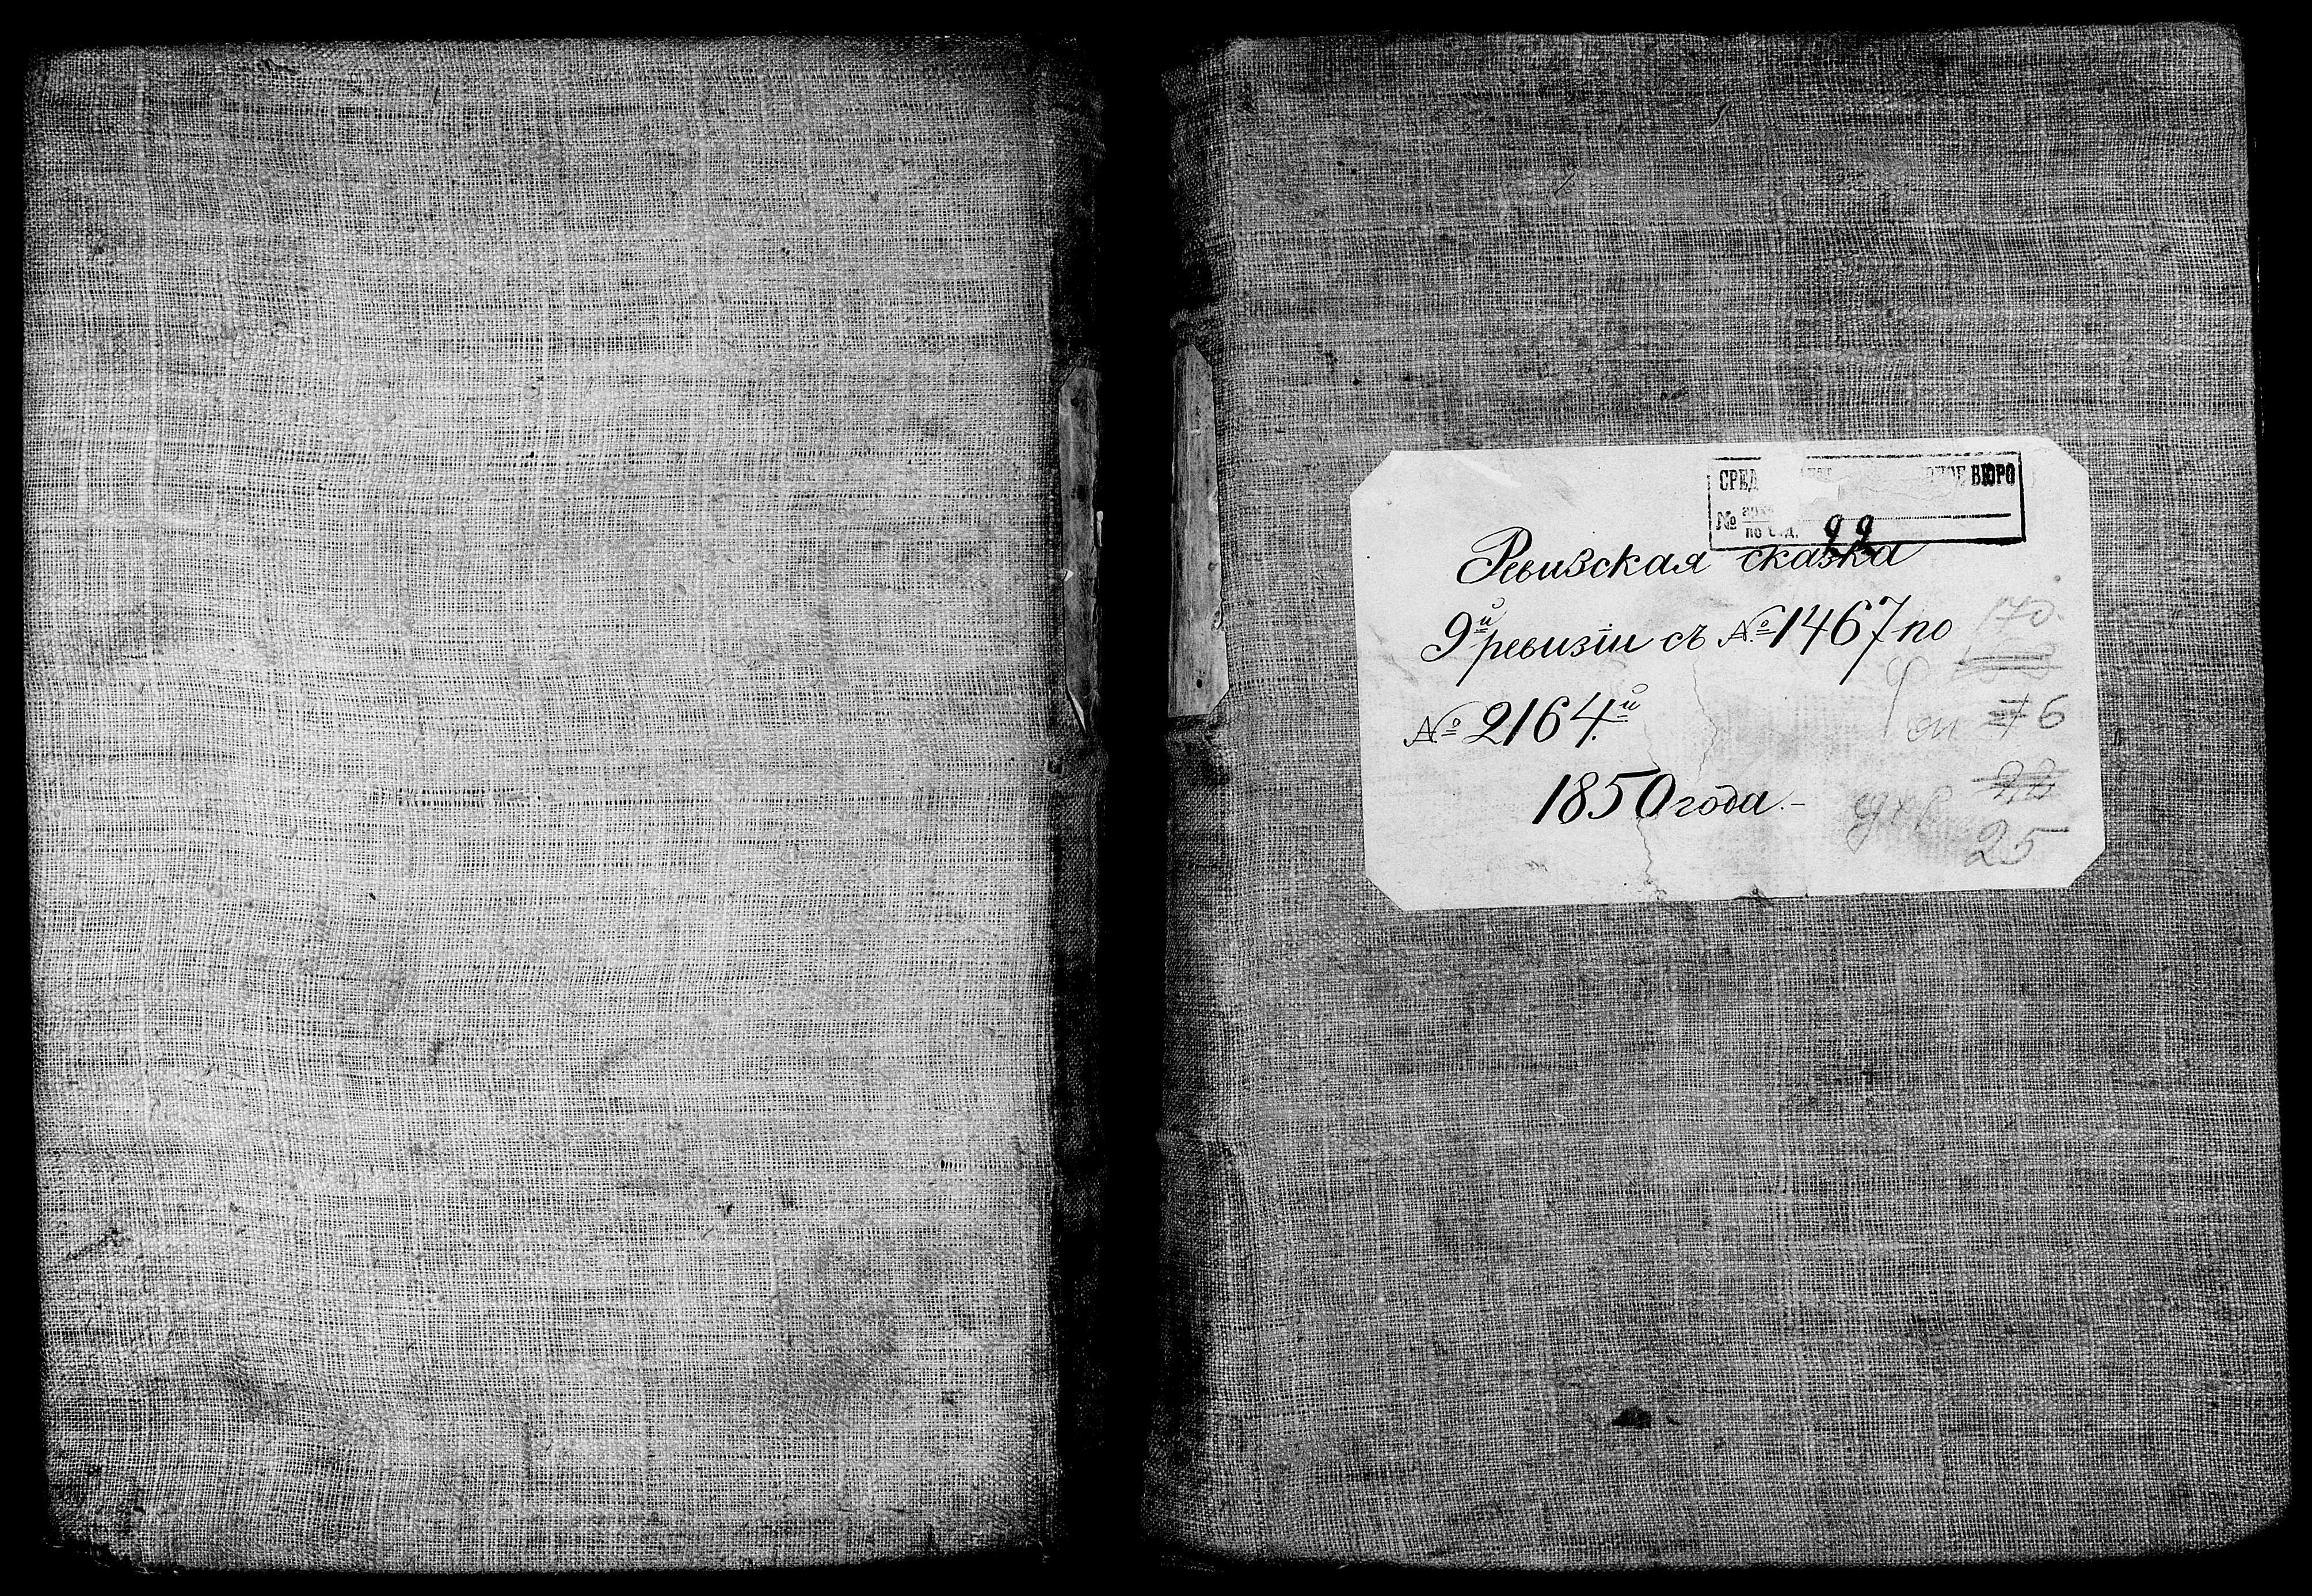 СРЕД БЮРО
№
по 99
Ревизская сказка
9й ревизіи съ № 1467 по
№ 2164.й
1850 года.-
170.
ф
оп 6
25